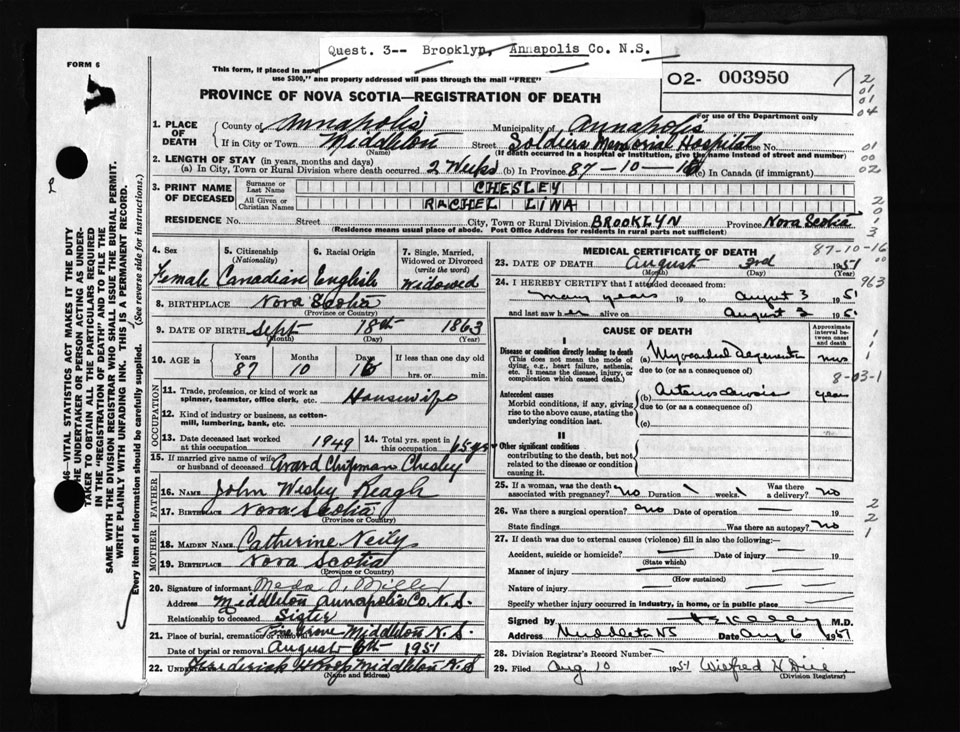 Quest. 3-- Brooklyn, Annapolis Co. N.S.
FORM 6
This form, if placed in an
use $300," and property addressed will pass through the mail "FREE"
02- 003950
PROVINCE OF NOVA SCOTIA—REGISTRATION OF DEATH
For use of the Department only
1. PLACE OF DEATH
County of Annapolis Municipality of Annapolis
If in City or Town Middleton Street Soldiers Memorial Hospital House No.
(Name) (If death occurred in a hospital or institution, give the name instead of street and number)
2. LENGTH OF STAY (in years, months and days)
(a) In City, Town or Rural Division where death occurred 2 Weeks (b) In Province 87-10-16 (c) In Canada (if immigrant)
3. PRINT NAME OF DECEASED
Surname or Last Name CHESLEY
All Given or Christian Names RACHEL LINA
RESIDENCE No. Street City, Town or Rural Division BROOKLYN Province Nova Scotia
(Residence means usual place of abode. Post Office Address for residents in rural parts not sufficient)
4. Sex Female
5. Citizenship (Nationality) Canadian
6. Racial Origin English
7. Single, Married, Widowed or Divorced (write the word) Widowed
8. BIRTHPLACE Nova Scotia
(Province or Country)
9. DATE OF BIRTH Sept 18th 1863
(Month) (Day) (Year)
10. AGE IN Years 87 Months 10 Days 16 If less than one day old
hrs. or min.
OCCUPATION
11. Trade, profession, or kind of work as spinner, teamster, office clerk, etc. Housewife
12. Kind of industry or business, as cotton-mill, lumbering, bank, etc.
13. Date deceased last worked at this occupation 1949
14. Total yrs. spent in this occupation 65 yrs
15. If married give name of wife or husband of deceased Avard Chipman Chesley
FATHER
16. NAME John Wesley Reagh
17. BIRTHPLACE Nova Scotia
(Province or Country)
MOTHER
18. MAIDEN NAME Catherine Neily
19. BIRTHPLACE Nova Scotia
(Province or Country)
20. Signature of informant Meda Miller
Address Middleton Annapolis Co. N.S.
Relationship to deceased Sister
21. Place of burial, cremation or removal Pine Grove Middleton N.S.
Date of burial or removal August 6th 1951
22. Undertaker Middleton N.S.
(Name and address)
MEDICAL CERTIFICATE OF DEATH 87-10-16
23. DATE OF DEATH August 3rd 1951
(Month) (Day)
24. I HEREBY CERTIFY that I attended deceased from: 963
many years 19 to August 3 1951
and last saw her alive on August 2 1951
CAUSE OF DEATH
Approximate interval between onset and death
I
Disease or condition directly leading to death
(This does not mean the mode of dying, e.g., heart failure, asthenia, etc. It means the disease, injury, or complication which caused death.)
(a) Myocardial degeneration
due to (or as consequence of) 8-03-1
Antecedent causes
Morbid conditions, if any, giving rise to the above cause, stating the underlying condition last.
(b) Arteriosclerosis years
due to (or as consequence of)
(c)
II
Other significant conditions
contributing to the death, but not related to the disease or condition causing it.
25. If a woman, was the death associated with pregnancy? no Duration weeks Was there a delivery? no
26. Was there a surgical operation? no Date of operation 19
State findings Was there an autopsy? no
27. If death was due to external causes (violence) fill in also the following:—
Accident, suicide or homicide? Date of injury 19
(State which)
Manner of injury
(How sustained)
Nature of injury
Specify whether injury occurred in industry, in home, or in public place
Signed by M.D.
Address Middleton NS Date Aug 6 1951
28. Division Registrar's Record Number
29. Filed Aug 10 1951 Wilfred H
(Division Registrar)
46—VITAL STATISTICS ACT MAKES IT THE DUTY
THE UNDERTAKER OR PERSON ACTING AS UNDER-
TAKER TO OBTAIN ALL THE PARTICULARS REQUIRED
IN THE "REGISTRATION OF DEATH" AND TO FILE THE
SAME WITH THE DIVISION REGISTRAR WHO SHALL ISSUE THE BURIAL PERMIT.
WRITE PLAINLY WITH UNFADING INK. THIS IS A PERMANENT RECORD.
Every item of information should be carefully supplied. (See reverse side for instructions.)